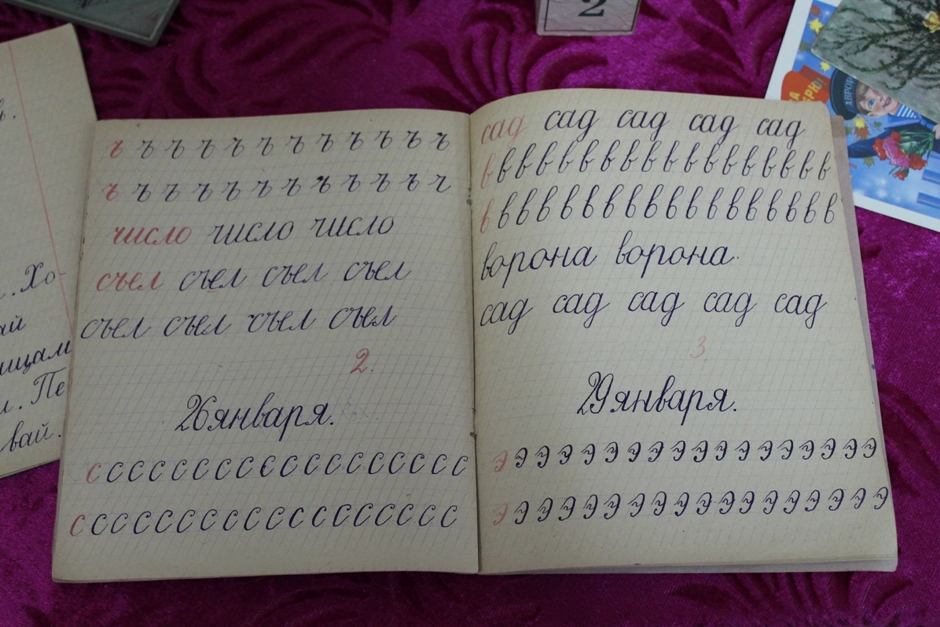 2
. Хо-
ай
ицам
. Пе
вай.
ъ ъ ъ ъ ъ ъ ъ ъ ъ ъ ъ ъ
ъ ъ ъ ъ ъ ъ ъ ъ ъ ъ ъ ч
число число число
съел съел съел съел
съел съел съел съел
2.
26 января.
с с с с с с с с с с с с с с с с с с
с с с с с с с с с с с с с с с с с с
сад сад сад сад сад
в в в в в в в в в в в в в в в в в в
в в в в в в в в в в в в в в в в в в
ворона ворона.
сад сад сад сад сад
3.
29 января.
э э э э э э э э э э э э э э э э э э
э э э э э э э э э э э э э э э э э э